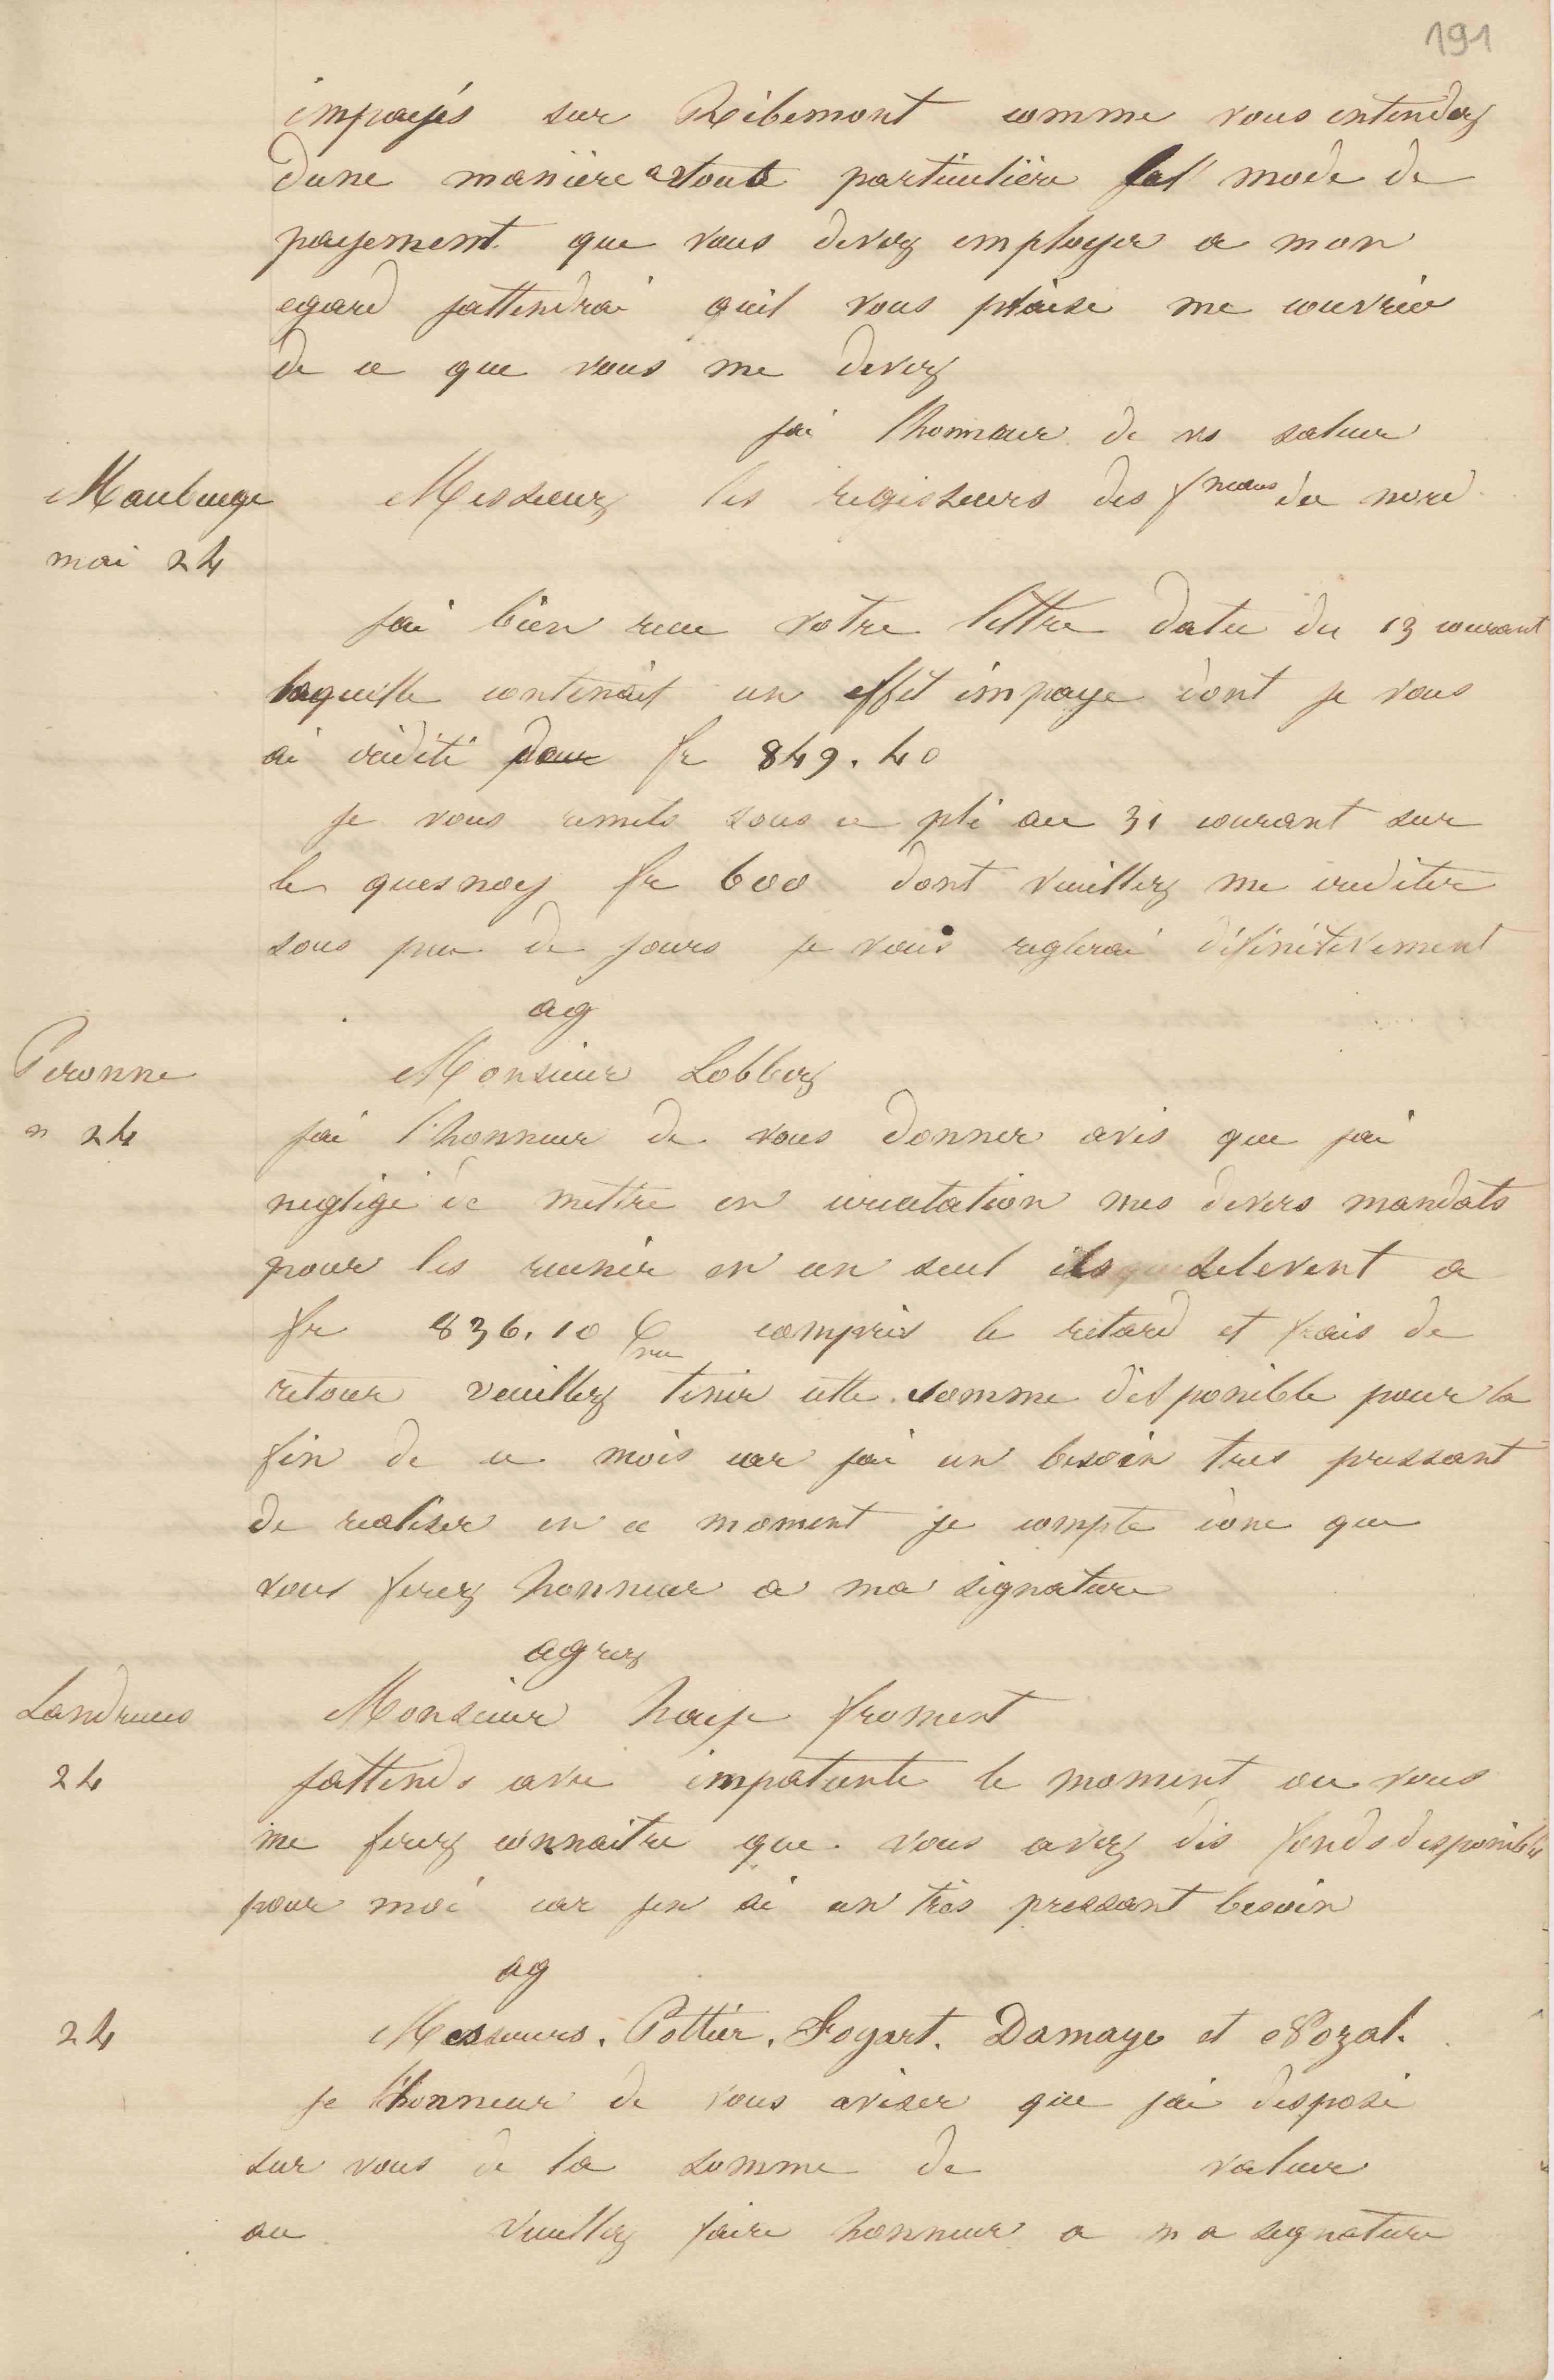 191
impayés sur Ribemont comme vous entendez
dune maniere toute particuliere le mode de
payement que vous devez employer a mon
egard jattendrai quil vous plaise me couvrir
de ce que vous me devez
jai lhonneur de vs saluer
Maubeuge Messieurs les regisseurs des fneaux du nord
mai 24
jai bien recu votre lettre datee du 13 courant
laquelle contenait un effet impaye dont je vous
ai crédité pour fr 849.40
je vous remets sous ce pli au 31 courant sur
le quesnoy fr 600 dont veuillez me crediter
sous peu de jours je vous reglerai definitivement
ag
Peronne Monsieur Lobbez
" 24 jai l'honneur de vous donner avis que jai
negligé de mettre en circulation mes divers mandats
pour les reunir en un seul ils selevent a
fr 836.10 compris le retard et frais de
retour veuillez tenir cette somme disponible pour la
fin de ce mois car jai un besoin tres pressant
de realiser en ce moment je compte donc que
vous ferez honneur a ma signature
agrez
Landrecies Monsieur froment
24 jattends avec impatiente le moment ou vous
me ferez connaitre que vous avez des fonds disponible
pour moi car jen ai un très pressant besoin
ag
24 Messieurs. Pottier. Fogart. Damaye et Nozal.
je lhonneur de vous aviser que jai disposé
sur vous de la somme de valeur
au veuillez faire honneur a ma signature